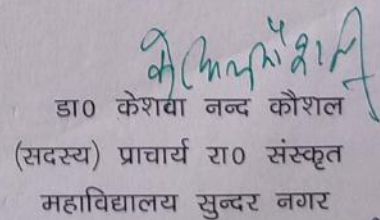 डा0 केशवा नन्द कौशल
(सदस्य) प्राचार्य रा0 संस्कृत
महाविद्यालय सुन्दर नगर